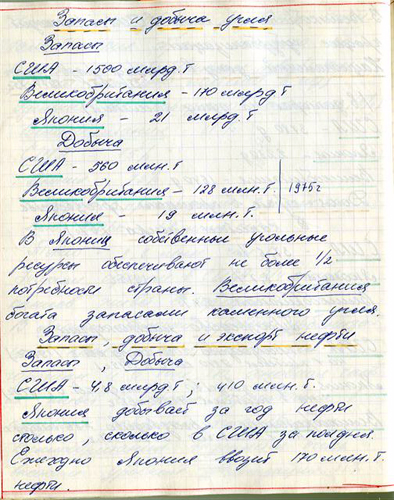 Запасы и добыча угля
Запасы
США - 1500 млрд.т
Великобритания - 170 млрд т
Япония - 21 млрд.т
Добыча
США - 560 млн.т
Великобритания - 128 млн.т | 1975г
Япония - 19 млн.т.
В Японии собственные угольные
ресурсы обеспечивают не более 1/2
потребности страны. Великобритания
богата запасами каменного угля.
Запасы, добыча и экспорт нефти
Запасы, Добыча
США - 4,8 млрд т ; 410 млн.т.
Япония добывает за год нефти
сколько, сколько в США за полдня.
Ежегодно Япония ввозит 170 млн.т.
нефти.